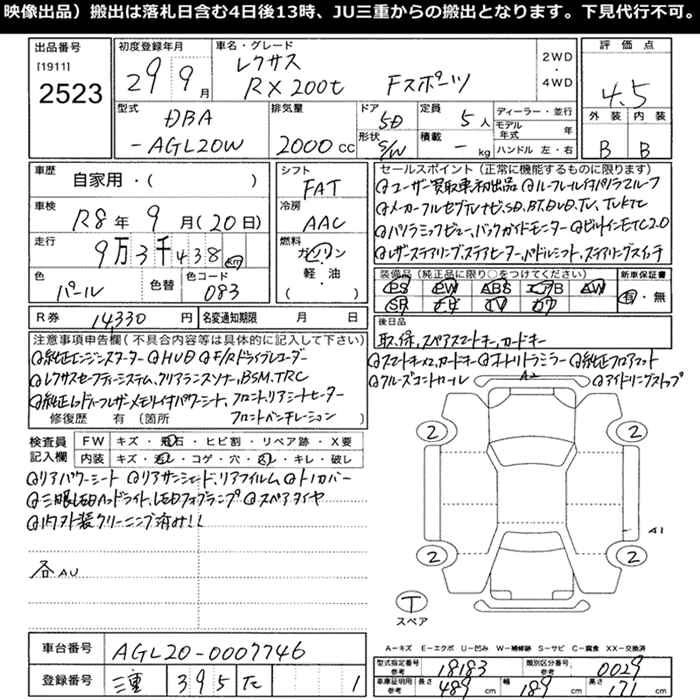 映像出品）搬出は落札日含む4日後13時、JU三重からの搬出となります。下見代行不可。
出品番号
[1911]
2523
初度登録年月
29 9月
車名・グレード
レクサス
RX200t Fスポーツ
2WD
・
4WD
評価点
4.5
外装 内装
B B
型式
DBA
-AGL20W
排気量
2000 cc
ドア
5D
形状
S/W
定員
5人
積載
- kg
ディーラー・並行
モデル年式 年
ハンドル 左・右
車歴
自家用・( )
車検
R8年 9月(20日)
走行
9万3千438 km
色
パール
色替
色コード
083
シフト
FAT
冷房
AAC
燃料
ガソリン
軽・油
( )
セールスポイント（正常に機能するものに限ります）
◎ユーザー買取車初出品 ◎ルーフレール付パノラマルーフ
◎メーカーフルセグTVナビ,SD,BT,DVD,TV,
◎パノラミックビュー,バックガイドモニター ◎ビルトインETC2.0
◎レザーステアリング,ステアヒーター,パドルシフト,ステアリングスイッチ
装備品（純正品に限り○をつけてください）
PS PW ABS エアB AW
SR ナビ TV カワ
新車保証書
有・無
R券 14,330円
名変通知期限 月 日
後日品
取,保,スペアスマートキー,カードキー
注意事項申告欄(不具合内容等は具体的に記入して下さい)
◎純正エンジンスターター ◎HUD ◎F/Rドライブレコーダー
◎レクサスセーフティーシステム,クリアランスソナー,BSM,TRC
◎純正レッドレザーメモリィ付パワーシート,フロント,リアシートヒーター
フロントベンチレーション
修復歴 有(箇所 )
◎スマートキーx2,カードキー ◎オートリトラミラー ◎純正フロアマット
◎クルーズコントロール
◎アイドリングストップ
検査員記入欄
FW キズ・飛石・ヒビ割・リペア跡・X要
内装 キズ・汚レ・コゲ・穴・スレ・キレ・破レ
◎リアパワーシート ◎リアサンシェード,リアフィルム ◎トノカバー
◎三眼LEDヘッドライト,LEDフォグランプ ◎スペアタイヤ
◎内外装クリーニング済み!!
各AU
A2
2 2
A1
2 2
T
スペア
車台番号
AGL20-0007746
登録番号
三重 395 た 1
A-キズ E-エクボ U-凹み W-補修跡 S-サビ C-腐食 XX-交換済
型式指定番号 参考 18183
類別区分番号 参考 0029
車庫証明用 参考
長さ 489cm 幅 189cm 高さ 171cm